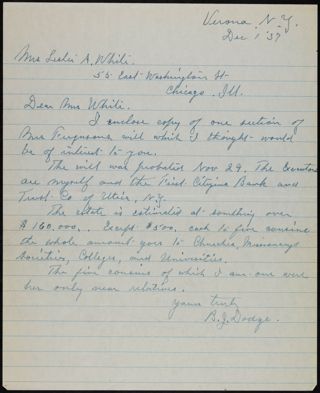 Verona, N.Y.
Dec 1 '37
Mrs Leslie A. White.
55 East Washington St
Chicago, Ill.
Dear Mrs White.
I enclose copy of one section of
Mrs Fergusons will which I thought would
be of interest to you.
The will was probated Nov 29. The Executors
are myself and the First Citizens Bank and
Trust Co of Utica, N.Y.
The estate is estimated at something over
$160,000. . Except $500. each to five cousins
the whole amount goes to Churches, Missionary
societies, Colleges, and Universities.
The five cousins of which I am one were
her only near relatives.
Yours truly
B. J. Dodge.